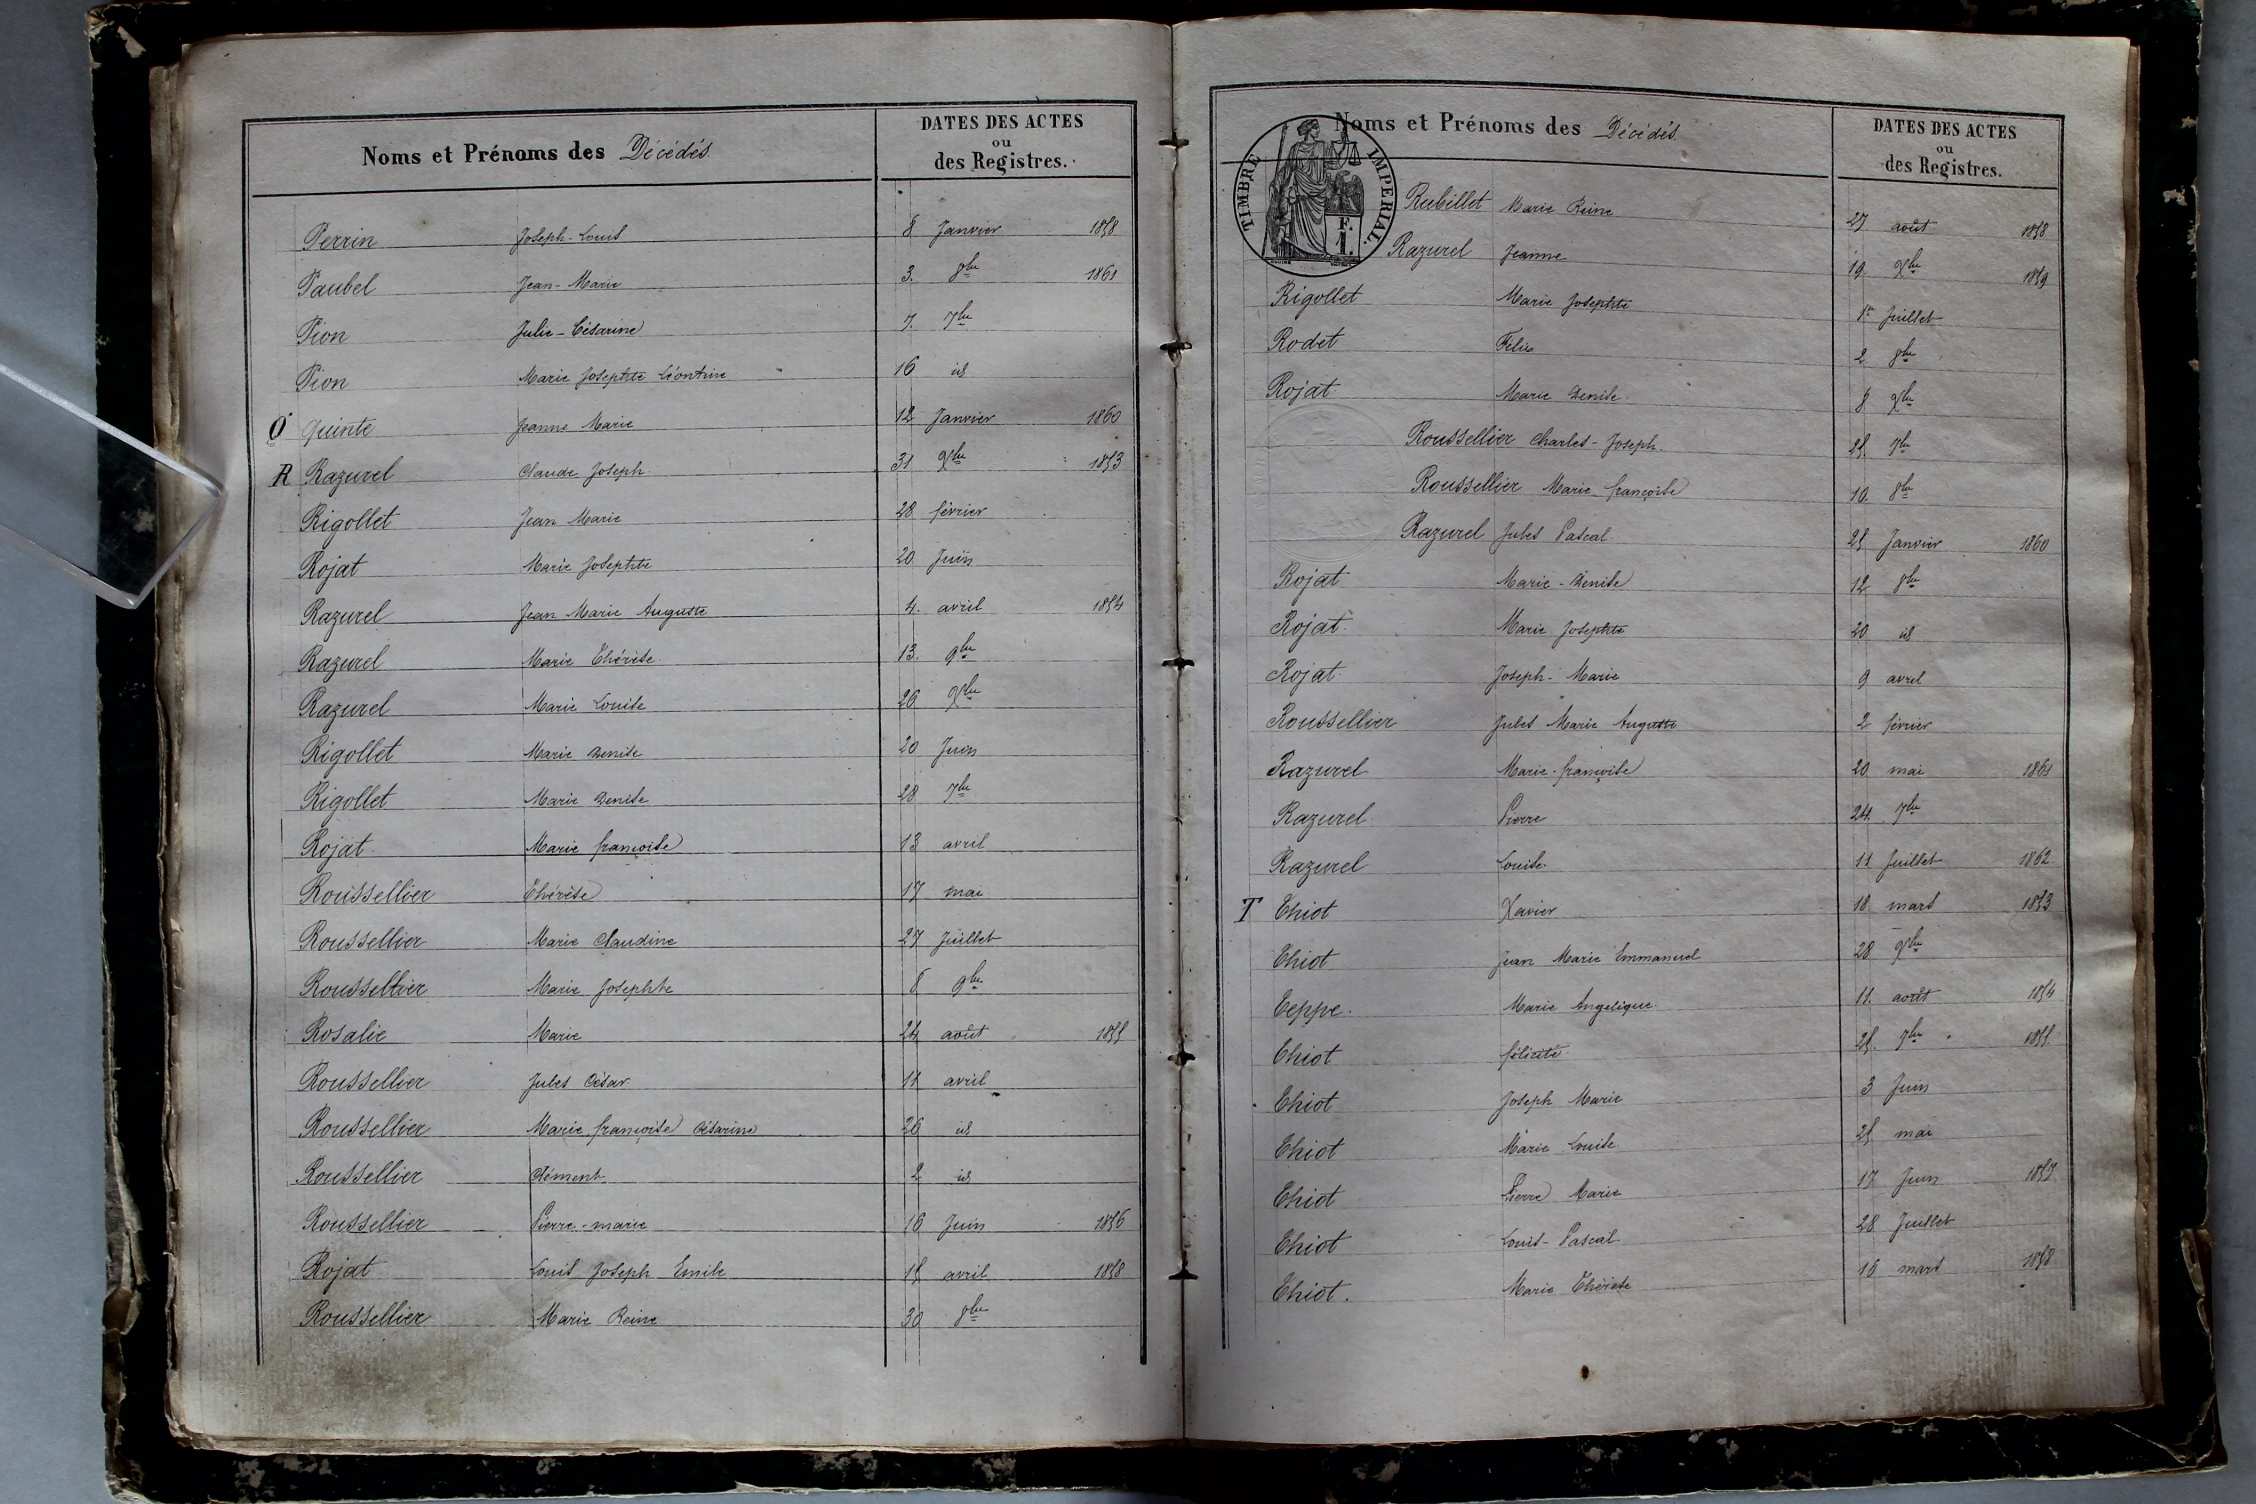 Noms et Prénoms des Décédés
DATES DES ACTES
ou
des Registres.
Perrin Joseph-Louis 8 Janvier 1858
Paubel Jean-Marie 3. 8bre 1861
Pion Julie-Césarine 7. 7bre
Pion Marie Josephte Léontine 16 id
Q Quinte Jeanne Marie 12 Janvier 1860
R Razurel Claude Joseph 31 Xbre 1853
Rigollet Jean Marie 28 février
Rojat Marie Josephte 20 Juin
Razurel Jean Marie Auguste 4. avril 1854
Razurel Marie Thérèse 13. 9bre
Razurel Marie Louise 26 Xbre
Rigollet Marie Denise 20 Juin
Rigollet Marie Denise 28 7bre
Rojat Marie françoise 13 avril
Roussellier Thérèse 17 mai
Roussellier Marie Claudine 27 Juillet
Roussellier Marie Josephte 8 9bre
Rosalie Marie 24 août 1855
Roussellier Jules César 11 avril
Roussellier Marie françoise Césarine 26 id
Roussellier Clément 2 id
Roussellier Pierre-marie 16 Juin 1856
Rojat Louis Joseph Emile 15 avril 1858
Roussellier Marie Reine 30 8bre
Noms et Prénoms des Décédés.
DATES DES ACTES
ou
des Registres.
TIMBRE IMPERIAL.
1 F.
Rubillet Marie Reine 27 août 1858
Razurel Jeanne 19. Xbre 1859
Rigollet Marie Josephte 1er Juillet
Rodet Felix 2 8bre
Rojat Marie Denise 8 9bre
Roussellier Charles-Joseph. 25. 7bre
Roussellier Marie françoise 10. 8bre
Razurel Jules Pascal 25 Janvier 1860
Rojat Marie-Denise 12 8bre
Rojat Marie Josephte 20 id
Rojat Joseph-Marie 9 avril
Roussellier Jules Marie Auguste 2 février
Razurel Marie-françoise 20 mai 1861
Razurel Pierre 24. 7bre
Razurel Louise 11 Juillet 1862
T Thiot Xavier 18 mars 1853
Thiot Jean Marie Emmanuel 28 9bre
Teppe. Marie Angelique. 11. août 1854
Thiot félicité 25. 7bre 1855
Thiot Joseph Marie 3 Juin
Thiot Marie Louise 25 mai
Thiot Pierre Marie 17 Juin 1857
Thiot Louis-Pascal 28 Juillet
Thiot. Marie Thérèse 16 mars 1858